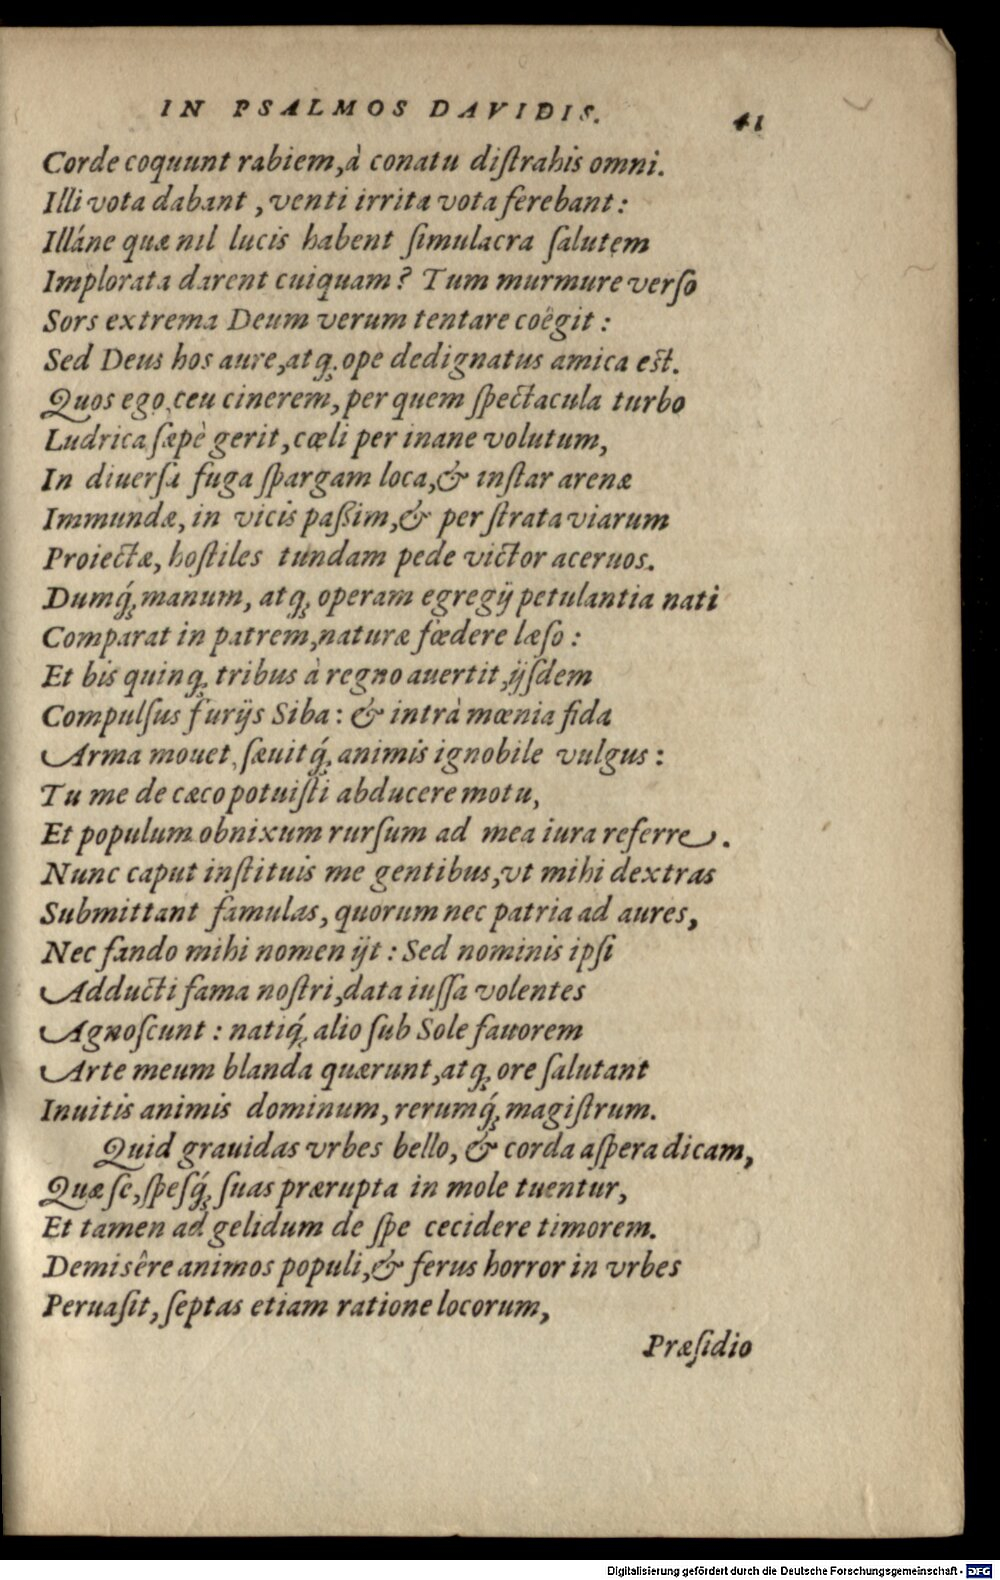 IN PSALMOS DAVIDIS. 41
Corde coquunt rabiem, à conatu diſtrahis omni.
Illi vota dabant, venti irrita vota ferebant:
Illáne quæ nil lucis habent ſimulacra ſalutem
Implorata darent cuiquam? Tum murmure verſo
Sors extrema Deum verum tentare coëgit:
Sed Deus hos aure, atq; ope dedignatus amica est.
Quos ego, ceu cinerem, per quem ſpectacula turbo
Ludrica ſæpè gerit, cœli per inane volutum,
In diuerſa fuga ſpargam loca, & inſtar arenæ
Immundæ, in vicis paßim, & per ſtrata viarum
Proiectæ, hoſtiles tundam pede victor aceruos.
Dumq́; manum, atq; operam egregij petulantia nati
Comparat in patrem, naturæ fœdere læſo:
Et bis quinq; tribus à regno auertit, ijſdem
Compulſus furijs Siba: & intrà mœnia fida
Arma mouet, ſæuitq́; animis ignobile vulgus:
Tu me de cæco potuiſti abducere motu,
Et populum obnixum rurſum ad mea iura referre.
Nunc caput inſtituis me gentibus, vt mihi dextras
Submittant famulas, quorum nec patria ad aures,
Nec fando mihi nomen ijt: Sed nominis ipſi
Adducti fama noſtri, data iuſſa volentes
Agnoſcunt: natiq́; alio ſub Sole fauorem
Arte meum blanda quærunt, atq; ore ſalutant
Inuitis animis dominum, rerumq́; magiſtrum.
Quid grauidas vrbes bello, & corda aſpera dicam,
Quæ ſe, ſpeſq́; ſuas prærupta in mole tuentur,
Et tamen ad gelidum de ſpe cecidere timorem.
Demisêre animos populi, & ferus horror in vrbes
Peruaſit, ſeptas etiam ratione locorum,
Præſidio
Digitalisierung gefördert durch die Deutsche Forschungsgemeinschaft - DFG